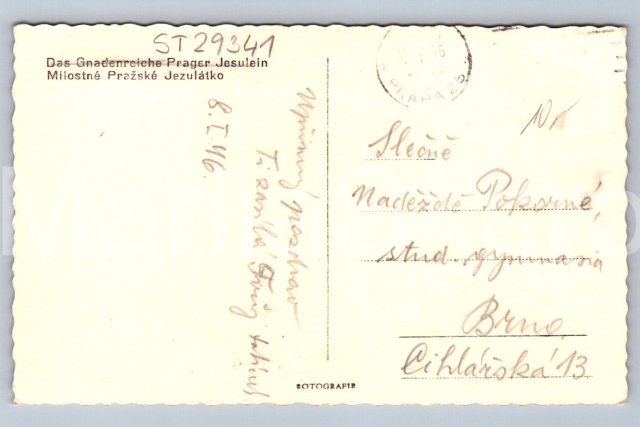 ST29341
Das Gnadenreiche Prager Jesulein
Milostné Pražské Jezulátko
8. I. 46.
Upřímný pozdrav
Ti zasílá Tvůj tatínek
PRAHA 25
Slečně
Naděždě Pokorné,
stud. gymnasia
Brno
Cihlářská 13
ROTOGRAFIE